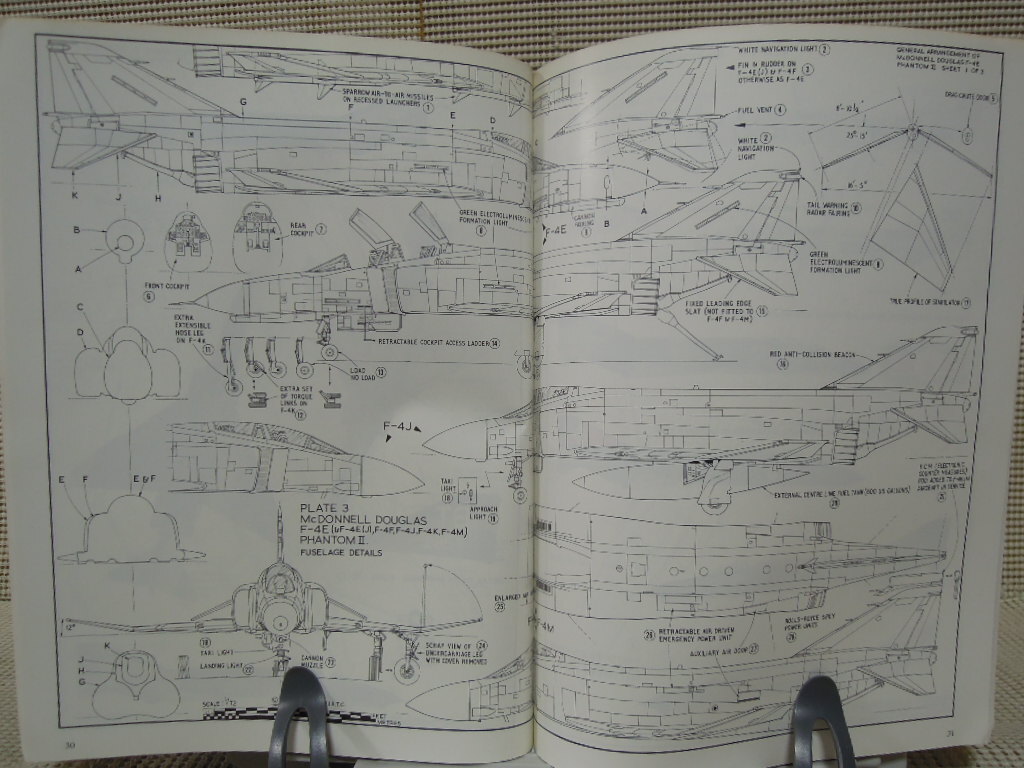 SPARROW AIR-TO-AIR MISSILES
ON RECESSED LAUNCHERS 1
G
F
E
D
K
J
H
GREEN ELECTROLUMINESCENT
FORMATION LIGHT
8
B
A
REAR
COCKPIT 7
FRONT COCKPIT
6
C
D
EXTRA
EXTENSIBLE
NOSE LEG
ON F-4K
11
RETRACTABLE COCKPIT ACCESS LADDER 14
LOAD
NO LOAD 13
EXTRA SET
OF TORQUE
LINKS ON
F-4K 12
F-4J
E F E&F
PLATE 3
McDONNELL DOUGLAS
F-4E (& F-4E(J), F-4F, F-4J, F-4K, F-4M)
PHANTOM II
FUSELAGE DETAILS
TAXI
LIGHT
18
APPROACH
LIGHT 19
12°
K
J
H
G
TAXI LIGHT
LANDING LIGHT 22
CANNON
MUZZLE 23
SCRAP VIEW OF 24
UNDERCARRIAGE LEG
WITH COVER REMOVED
25
SCALE 1/72
30
WHITE NAVIGATION LIGHT 2
FIN & RUDDER ON
F-4E(J) & F-4F 3
OTHERWISE AS F-4E
FUEL VENT 4
WHITE 2
NAVIGATION
LIGHT
GENERAL ARRANGEMENT OF
McDONNELL DOUGLAS F-4E
PHANTOM II SHEET 1 OF 3
DRAG-CHUTE DOOR 5
16'-5"
C
CANNON
FAIRING
9
B
A
F-4E
TAIL WARNING 10
RADAR FAIRING
GREEN
ELECTROLUMINESCENT
FORMATION LIGHT 8
FIXED LEADING EDGE
SLAT (NOT FITTED TO 15
F-4F & F-4M)
TRUE PROFILE OF STABILATOR 17
RED ANTI-COLLISION BEACON
16
EXTERNAL CENTRE LINE FUEL TANK (600 US GALLONS)
20
E.C.M. (ELECTRONIC
COUNTER MEASURES)
21
F-4M
26 RETRACTABLE AIR DRIVEN
EMERGENCY POWER UNIT
ROLLS-ROYCE SPEY
POWER UNITS
AUXILIARY AIR DOOR 27
31